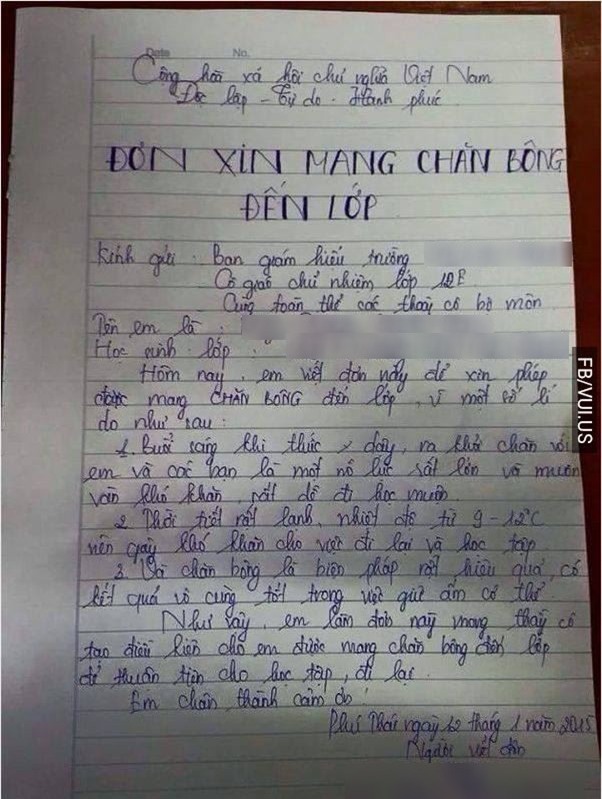 Date No.
Cộng hoà xá hội chủ nghĩa Việt Nam
Độc lập - Tự do - Hạnh phúc
ĐƠN XIN MANG CHĂN BÔNG
ĐẾN LỚP
Kính gửi : Ban giám hiệu trường
Cô giáo chủ nhiệm lớp 12E
Cùng toàn thể các thầy cô bộ môn
Tên em là :
Học sinh lớp :
Hôm nay, em viết đơn này để xin phép
được mang CHĂN BÔNG đến lớp, vì một số lí
do như sau :
1. Buổi sáng khi thức dậy, ra khỏi chăn với
em và các bạn là một nỗ lực rất lớn và muôn
vàn khó khăn, rất dễ đi học muộn.
2. Thời tiết rất lạnh, nhiệt độ từ 9 - 12°C
nên gây khó khăn cho việc đi lại và học tập
3. Và chăn bông là biện pháp rất hiệu quả, có
kết quả vô cùng tốt trong việc giữ ấm cơ thể.
Như vậy, em làm đơn này mong thầy cô
tạo điều kiện cho em được mang chăn bông đến lớp
để thuận tiện cho học tập, đi lại.
Em chân thành cảm ơn!
Phú Thái ngày 12 tháng 1 năm 2015
Người viết đơn
FB/VUI.US